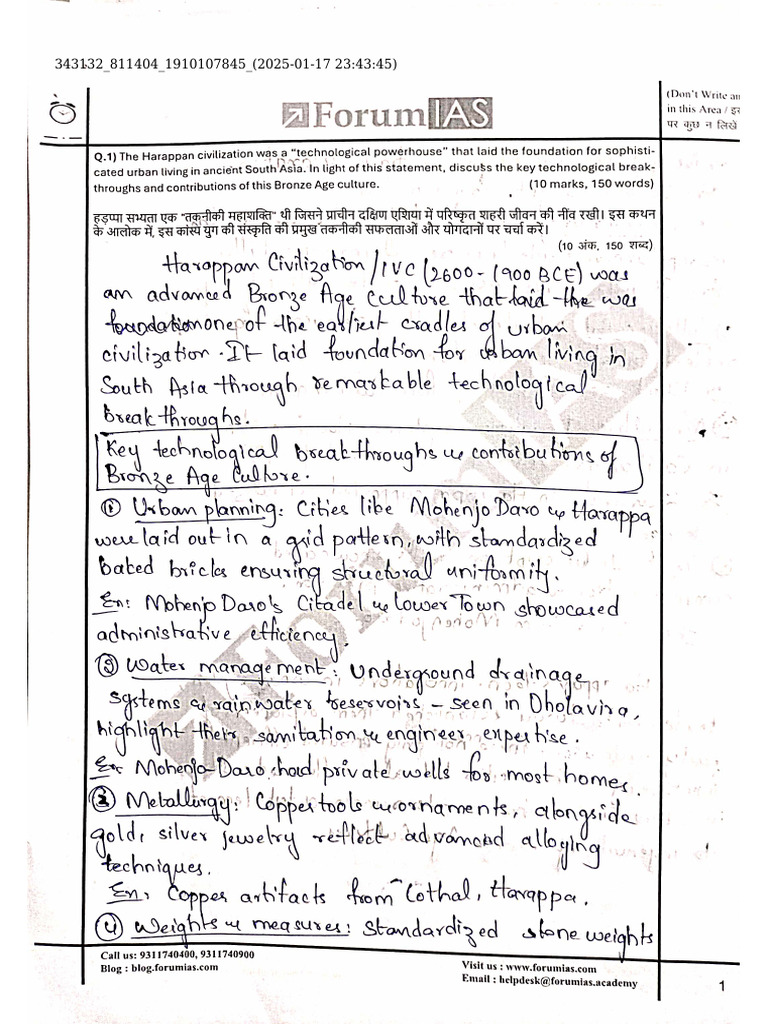 343132_811404_1910107845_(2025-01-17 23:43:45)
ForumIAS
(Don't Write an
in this Area / इस
पर कुछ न लिखें
Q.1) The Harappan civilization was a "technological powerhouse" that laid the foundation for sophisti-
cated urban living in ancient South Asia. In light of this statement, discuss the key technological break-
throughs and contributions of this Bronze Age culture. (10 marks, 150 words)
हड़प्पा सभ्यता एक "तकनीकी महाशक्ति" थी जिसने प्राचीन दक्षिण एशिया में परिष्कृत शहरी जीवन की नींव रखी। इस कथन
के आलोक में, इस कांस्य युग की संस्कृति की प्रमुख तकनीकी सफलताओं और योगदानों पर चर्चा करें।
(10 अंक, 150 शब्द)
Harappan Civilization / IVC (2600-1900 BCE) was
an advanced Bronze Age Culture that laid the was
foundation one of the earliest cradles of urban
civilization. It laid foundation for urban living in
South Asia through remarkable technological
breakthroughs.
Key technological breakthroughs & contributions of
Bronze Age Culture.
① Urban planning: Cities like Mohenjo Daro & Harappa
were laid out in a grid pattern, with standardized
baked bricks ensuring structural uniformity.
Ex: Mohenjo Daro's Citadel & Lower Town showcased
administrative efficiency.
② Water management: Underground drainage
systems & rainwater reservoirs – seen in Dholavira,
highlight their sanitation & engineer expertise.
Ex. Mohenjo-Daro had private wells for most homes.
③ Metallurgy: Copper tools & ornaments, alongside
gold, silver jewelry reflect advanced alloying
techniques.
Ex, Copper artifacts from Lothal, Harappa.
④ Weights & measures: Standardized stone weights
Call us: 9311740400, 9311740900
Blog : blog.forumias.com
Visit us : www.forumias.com
Email : helpdesk@forumias.academy
1